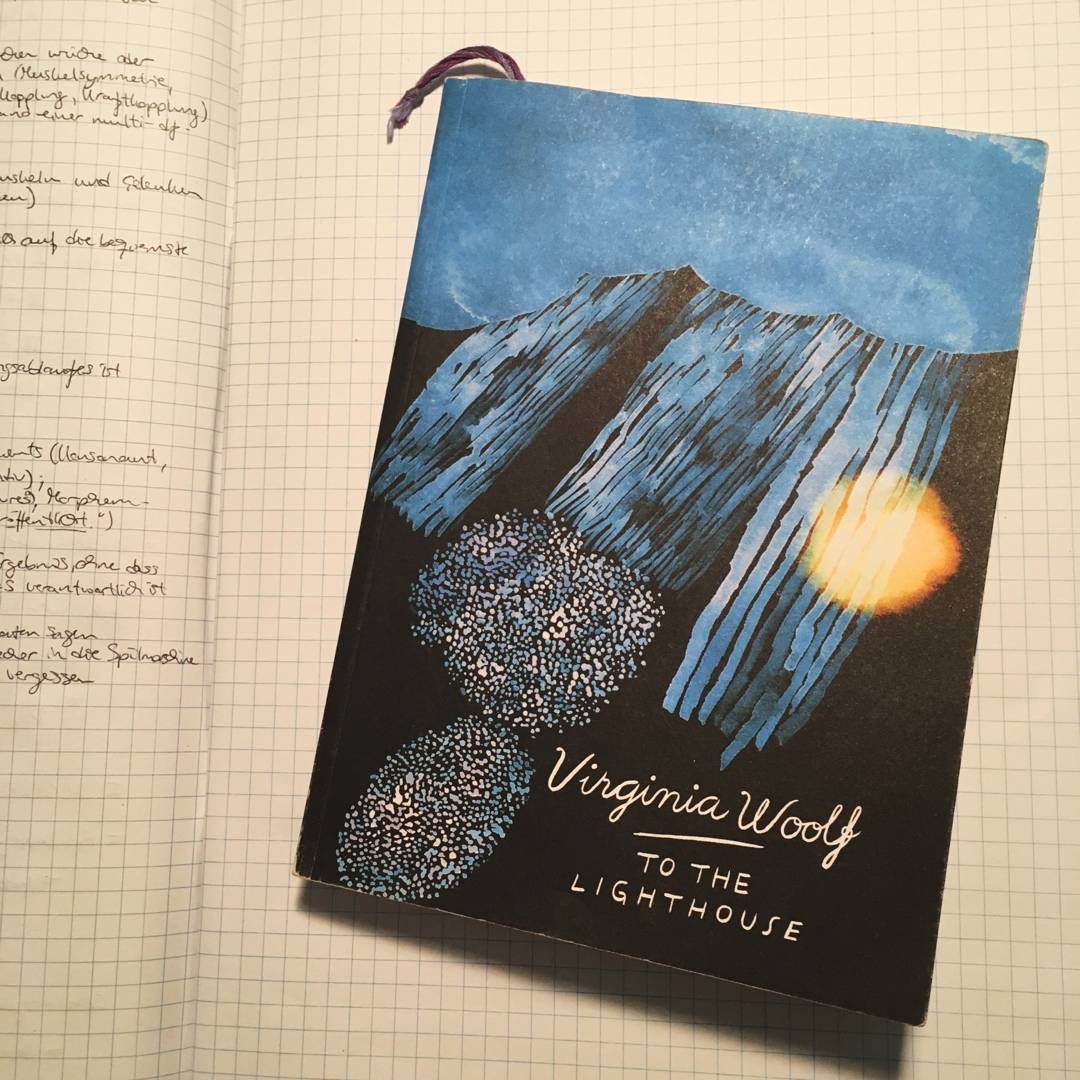 wäre oder
(Muskelsymmetrie,
kopplung, Kraftkopplung)
und einer multi-df
muskeln und Gelenken
auf die bequemste
ngsablaufes ist
ments (Konsonant,
Morphem-
röffentlicht.")
Ergebnis, ohne dass
es verantwortlich ist
sagen
in die Spülmaschine
vergessen
Virginia Woolf
TO THE
LIGHTHOUSE